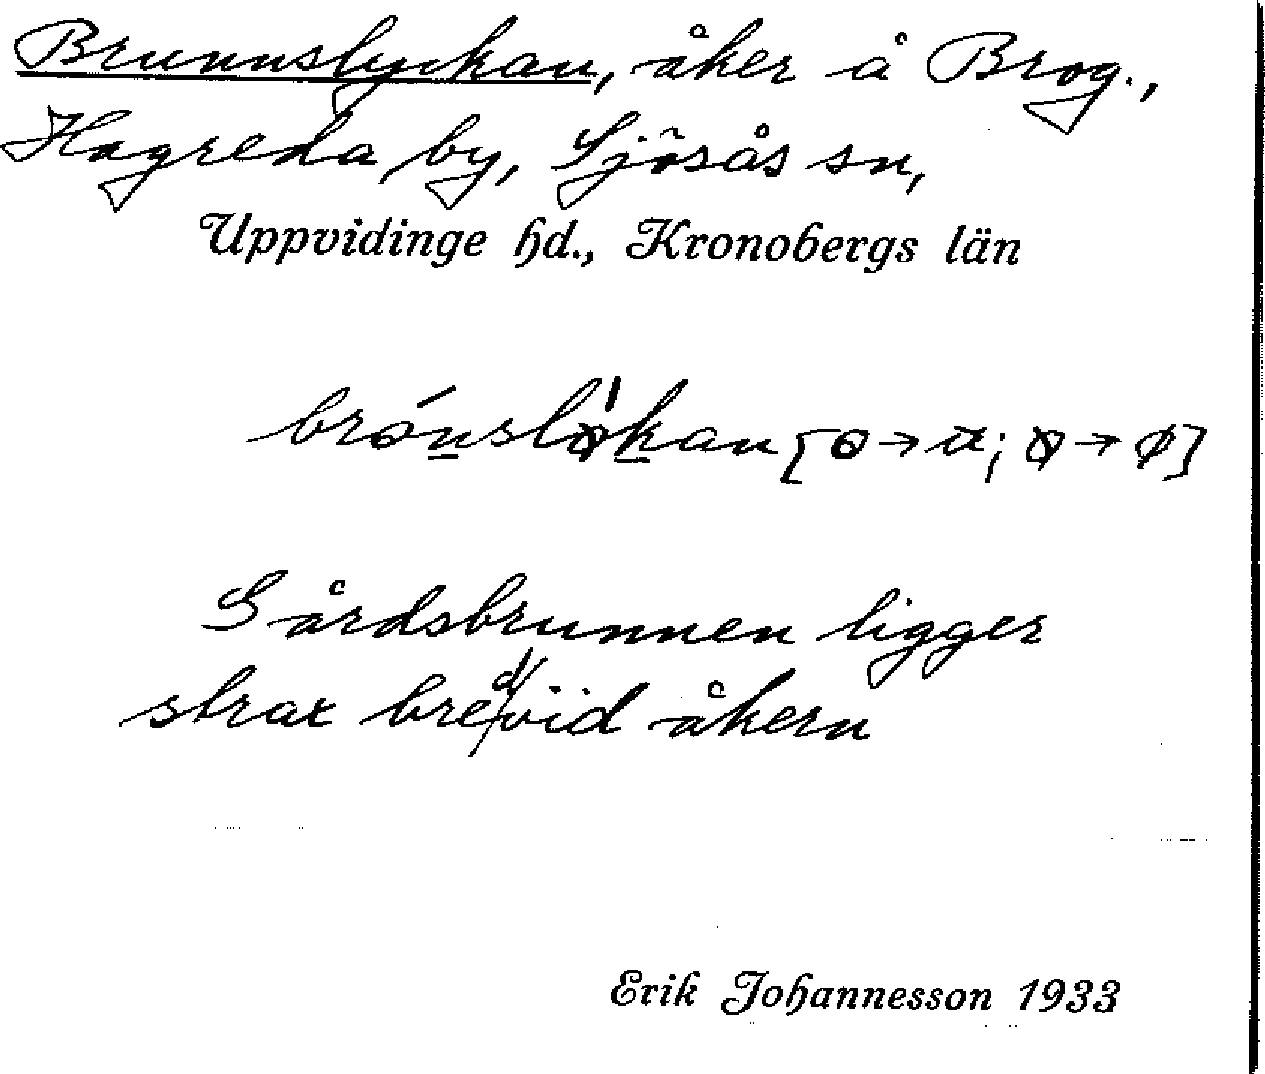 Brunnslyckan, åker å Brog.,
Hagreda by, Sjösås sn,
Uppvidinge hd., Kronobergs län
Gårdsbrunnen ligger
strax bredvid åkern
Erik Johannesson 1933